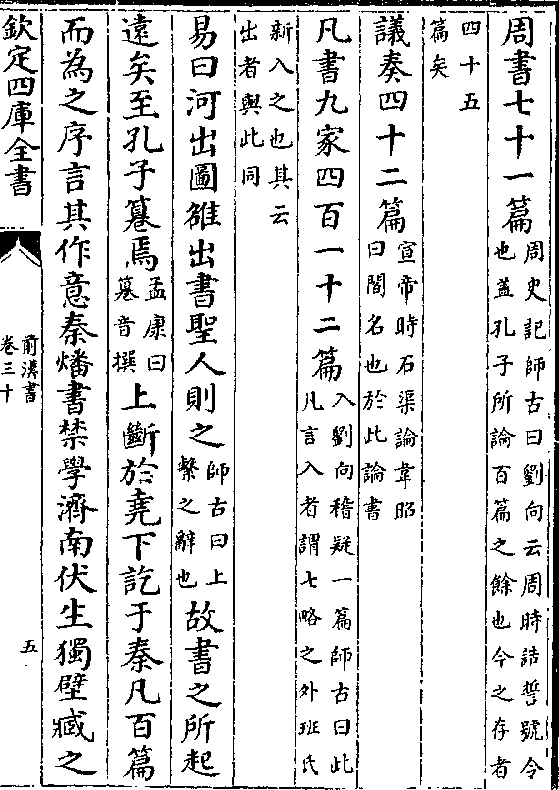 周書七十一篇周史記師古曰劉向云周時誥誓號令
也蓋孔子所論百篇之餘也今之存者
四十五
篇矣
議奏四十二篇宣帝時石渠論韋昭
曰閣名也於此論書
凡書九家四百一十二篇入劉向稽疑一篇師古曰此
凡言入者謂七略之外班氏
新入之也其云
出者與此同
易曰河出圖雒出書聖人則之師古曰上
繫之辭也故書之所起
遠矣至孔子篹焉孟康曰
篹音撰上斷於堯下訖于秦凡百篇
而為之序言其作意秦燔書禁學濟南伏生獨壁臧之
欽定四庫全書
前漢書
卷三十
五